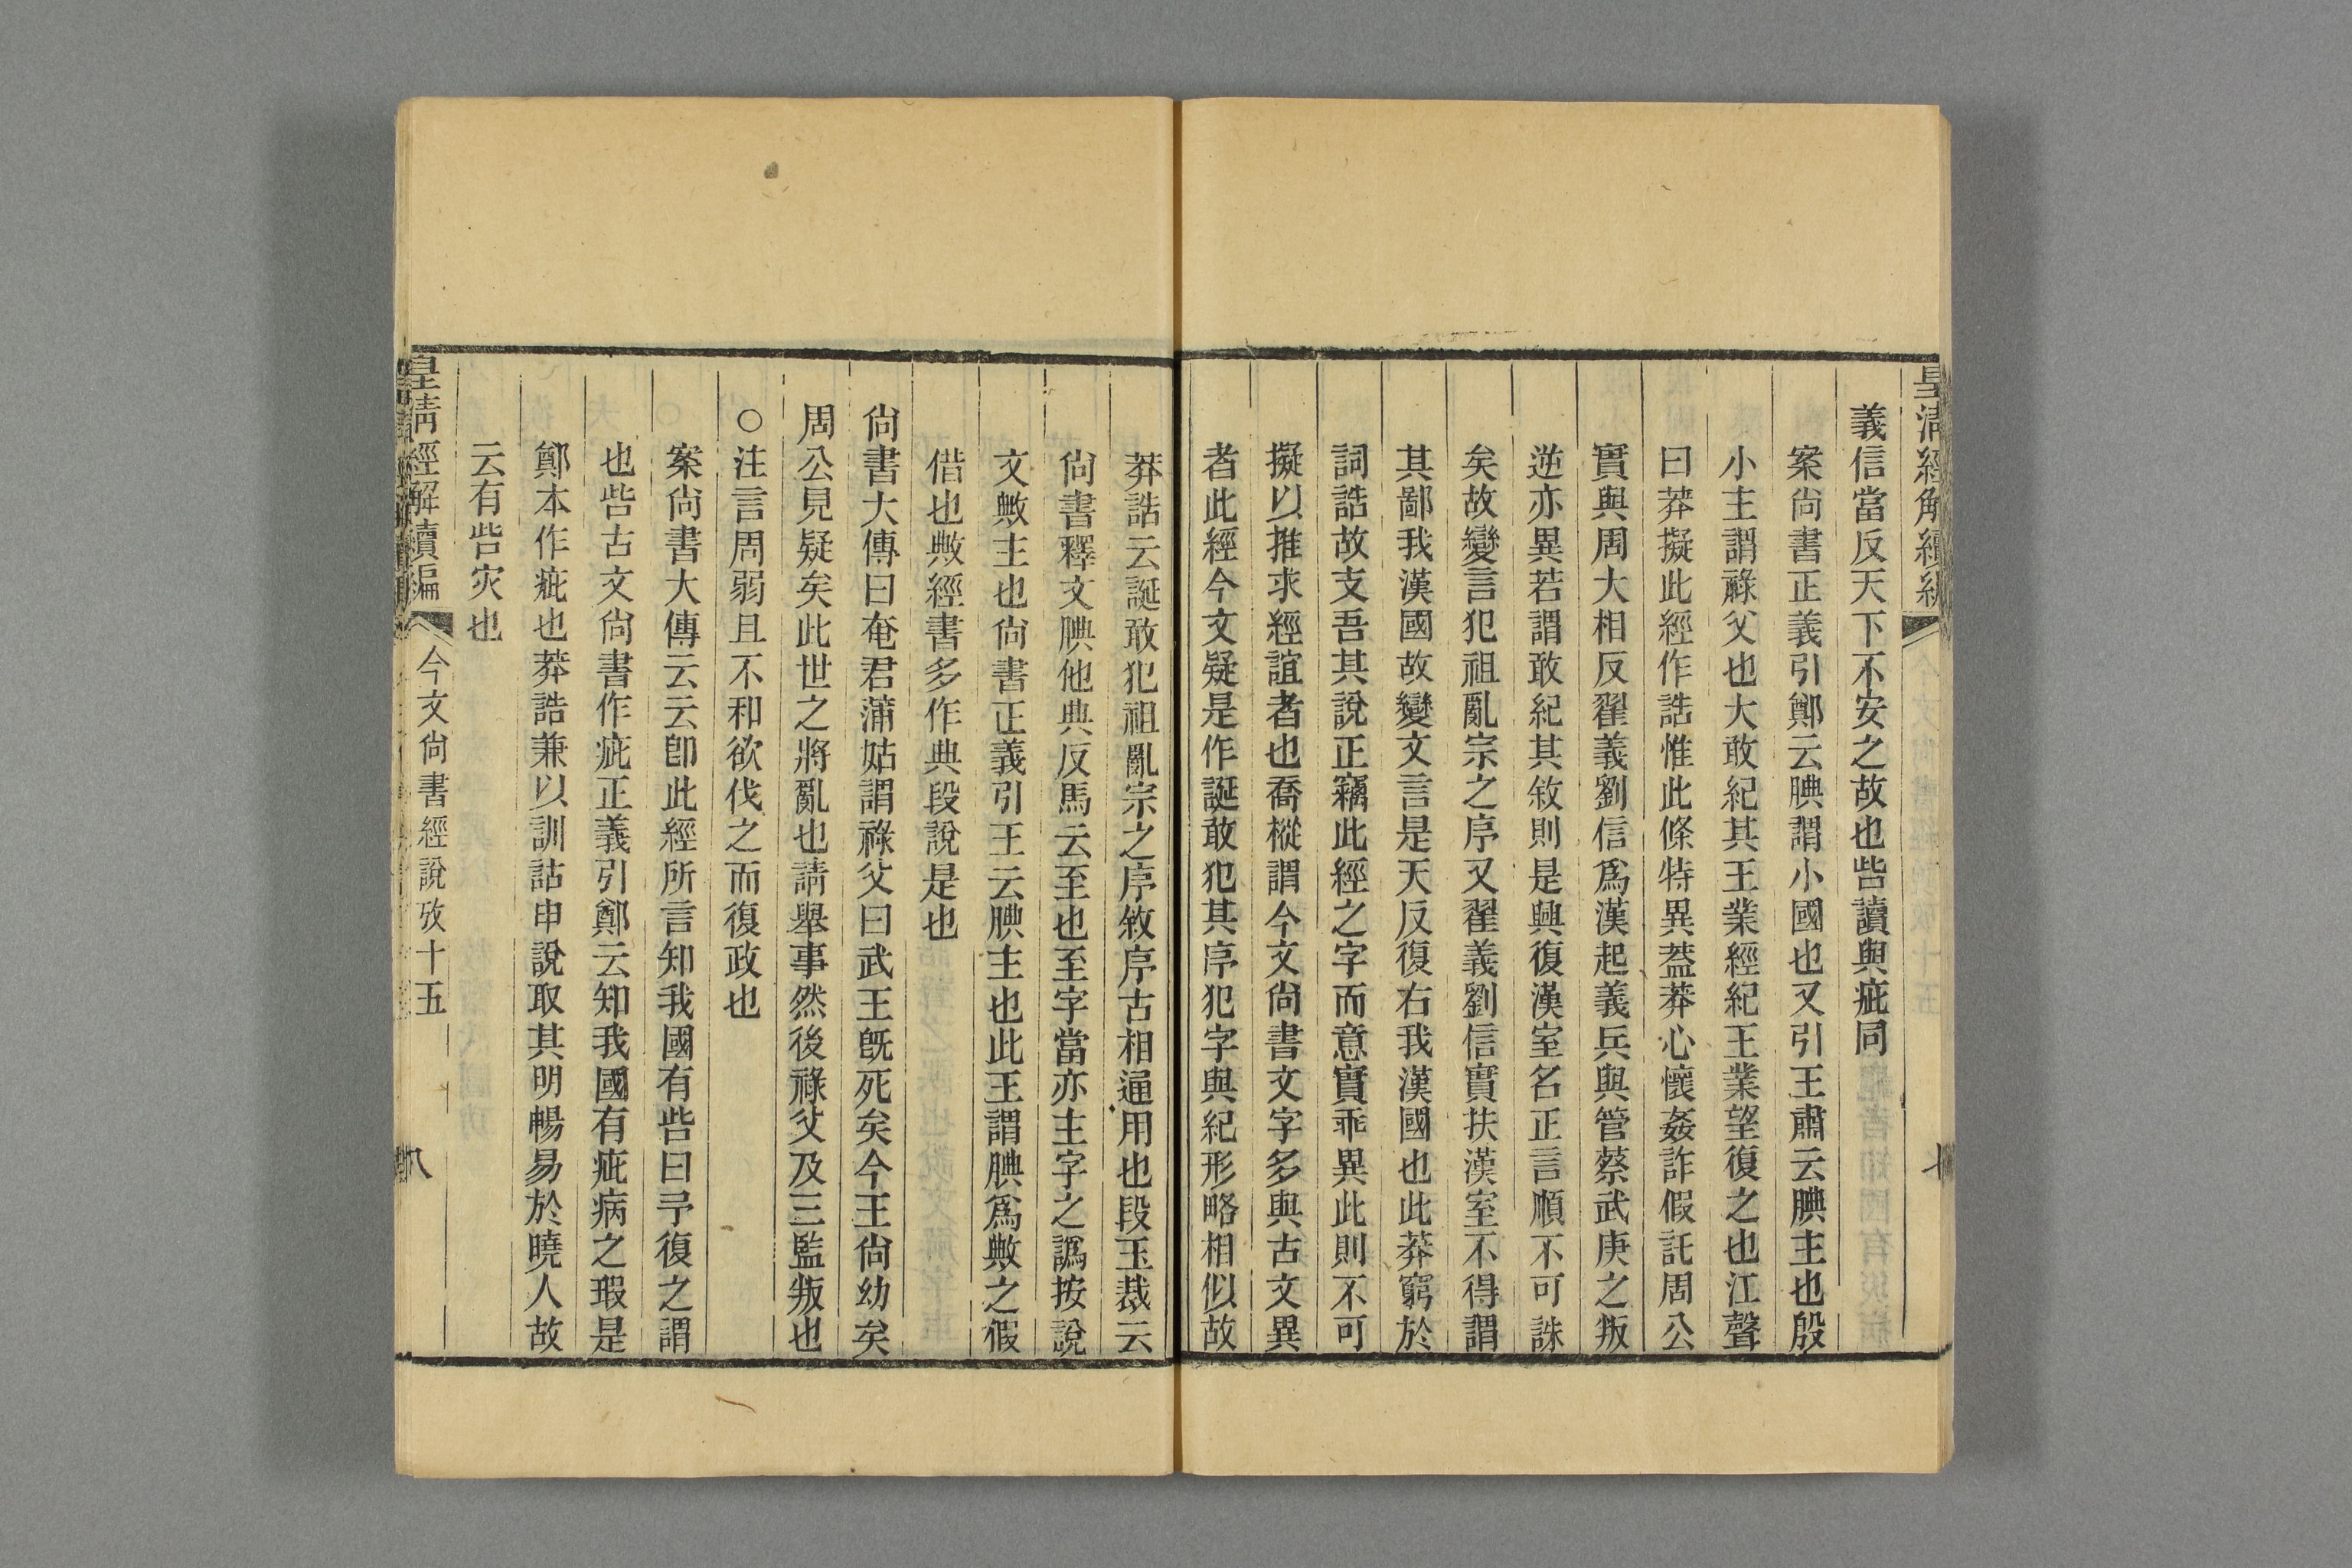 皇清經解續編
七
義信當反天下不安之故也呰讀與疵同
案尙書正義引鄭云腆謂小國也又引王肅云腆主也殷
小主謂祿父也大敢紀其王業經紀王業望復之也江聲
曰莽擬此經作誥惟此條特異葢莽心懷姦詐假託周公
實與周大相反翟義劉信爲漢起義兵與管蔡武庚之叛
逆亦異若謂敢紀其敘則是興復漢室名正言順不可誅
矣故變言犯祖亂宗之序又翟義劉信實扶漢室不得謂
其鄙我漢國故變文言是天反復右我漢國也此莽窮於
詞誥故支吾其說正竊此經之字而意實乖異此則不可
擬以推求經誼者也喬樅謂今文尙書文字多與古文異
者此經今文疑是作誕敢犯其序犯字與紀形略相似故
莽誥云誕敢犯祖亂宗之序敘序古相通用也段玉裁云
尙書釋文腆他典反馬云至也至字當亦主字之譌按說
文敟主也尙書正義引王云腆主也此王謂腆爲敟之假
借也敟經書多作典段說是也
尙書大傳曰奄君蒲姑謂祿父曰武王旣死矣今王尙幼矣
周公見疑矣此世之將亂也請舉事然後祿父及三監叛也
○注言周弱且不和欲伐之而復政也
案尙書大傳云云卽此經所言知我國有呰曰予復之謂
也呰古文尙書作疵正義引鄭云知我國有疵病之瑕是
鄭本作疵也莽誥兼以訓詁申說取其明暢易於曉人故
云有呰灾也
皇清經解續編
今文尙書經說攷十五
八